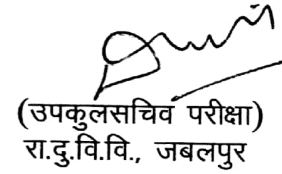 (उपकुलसचिव परीक्षा)
रा.दु.वि.वि., जबलपुर